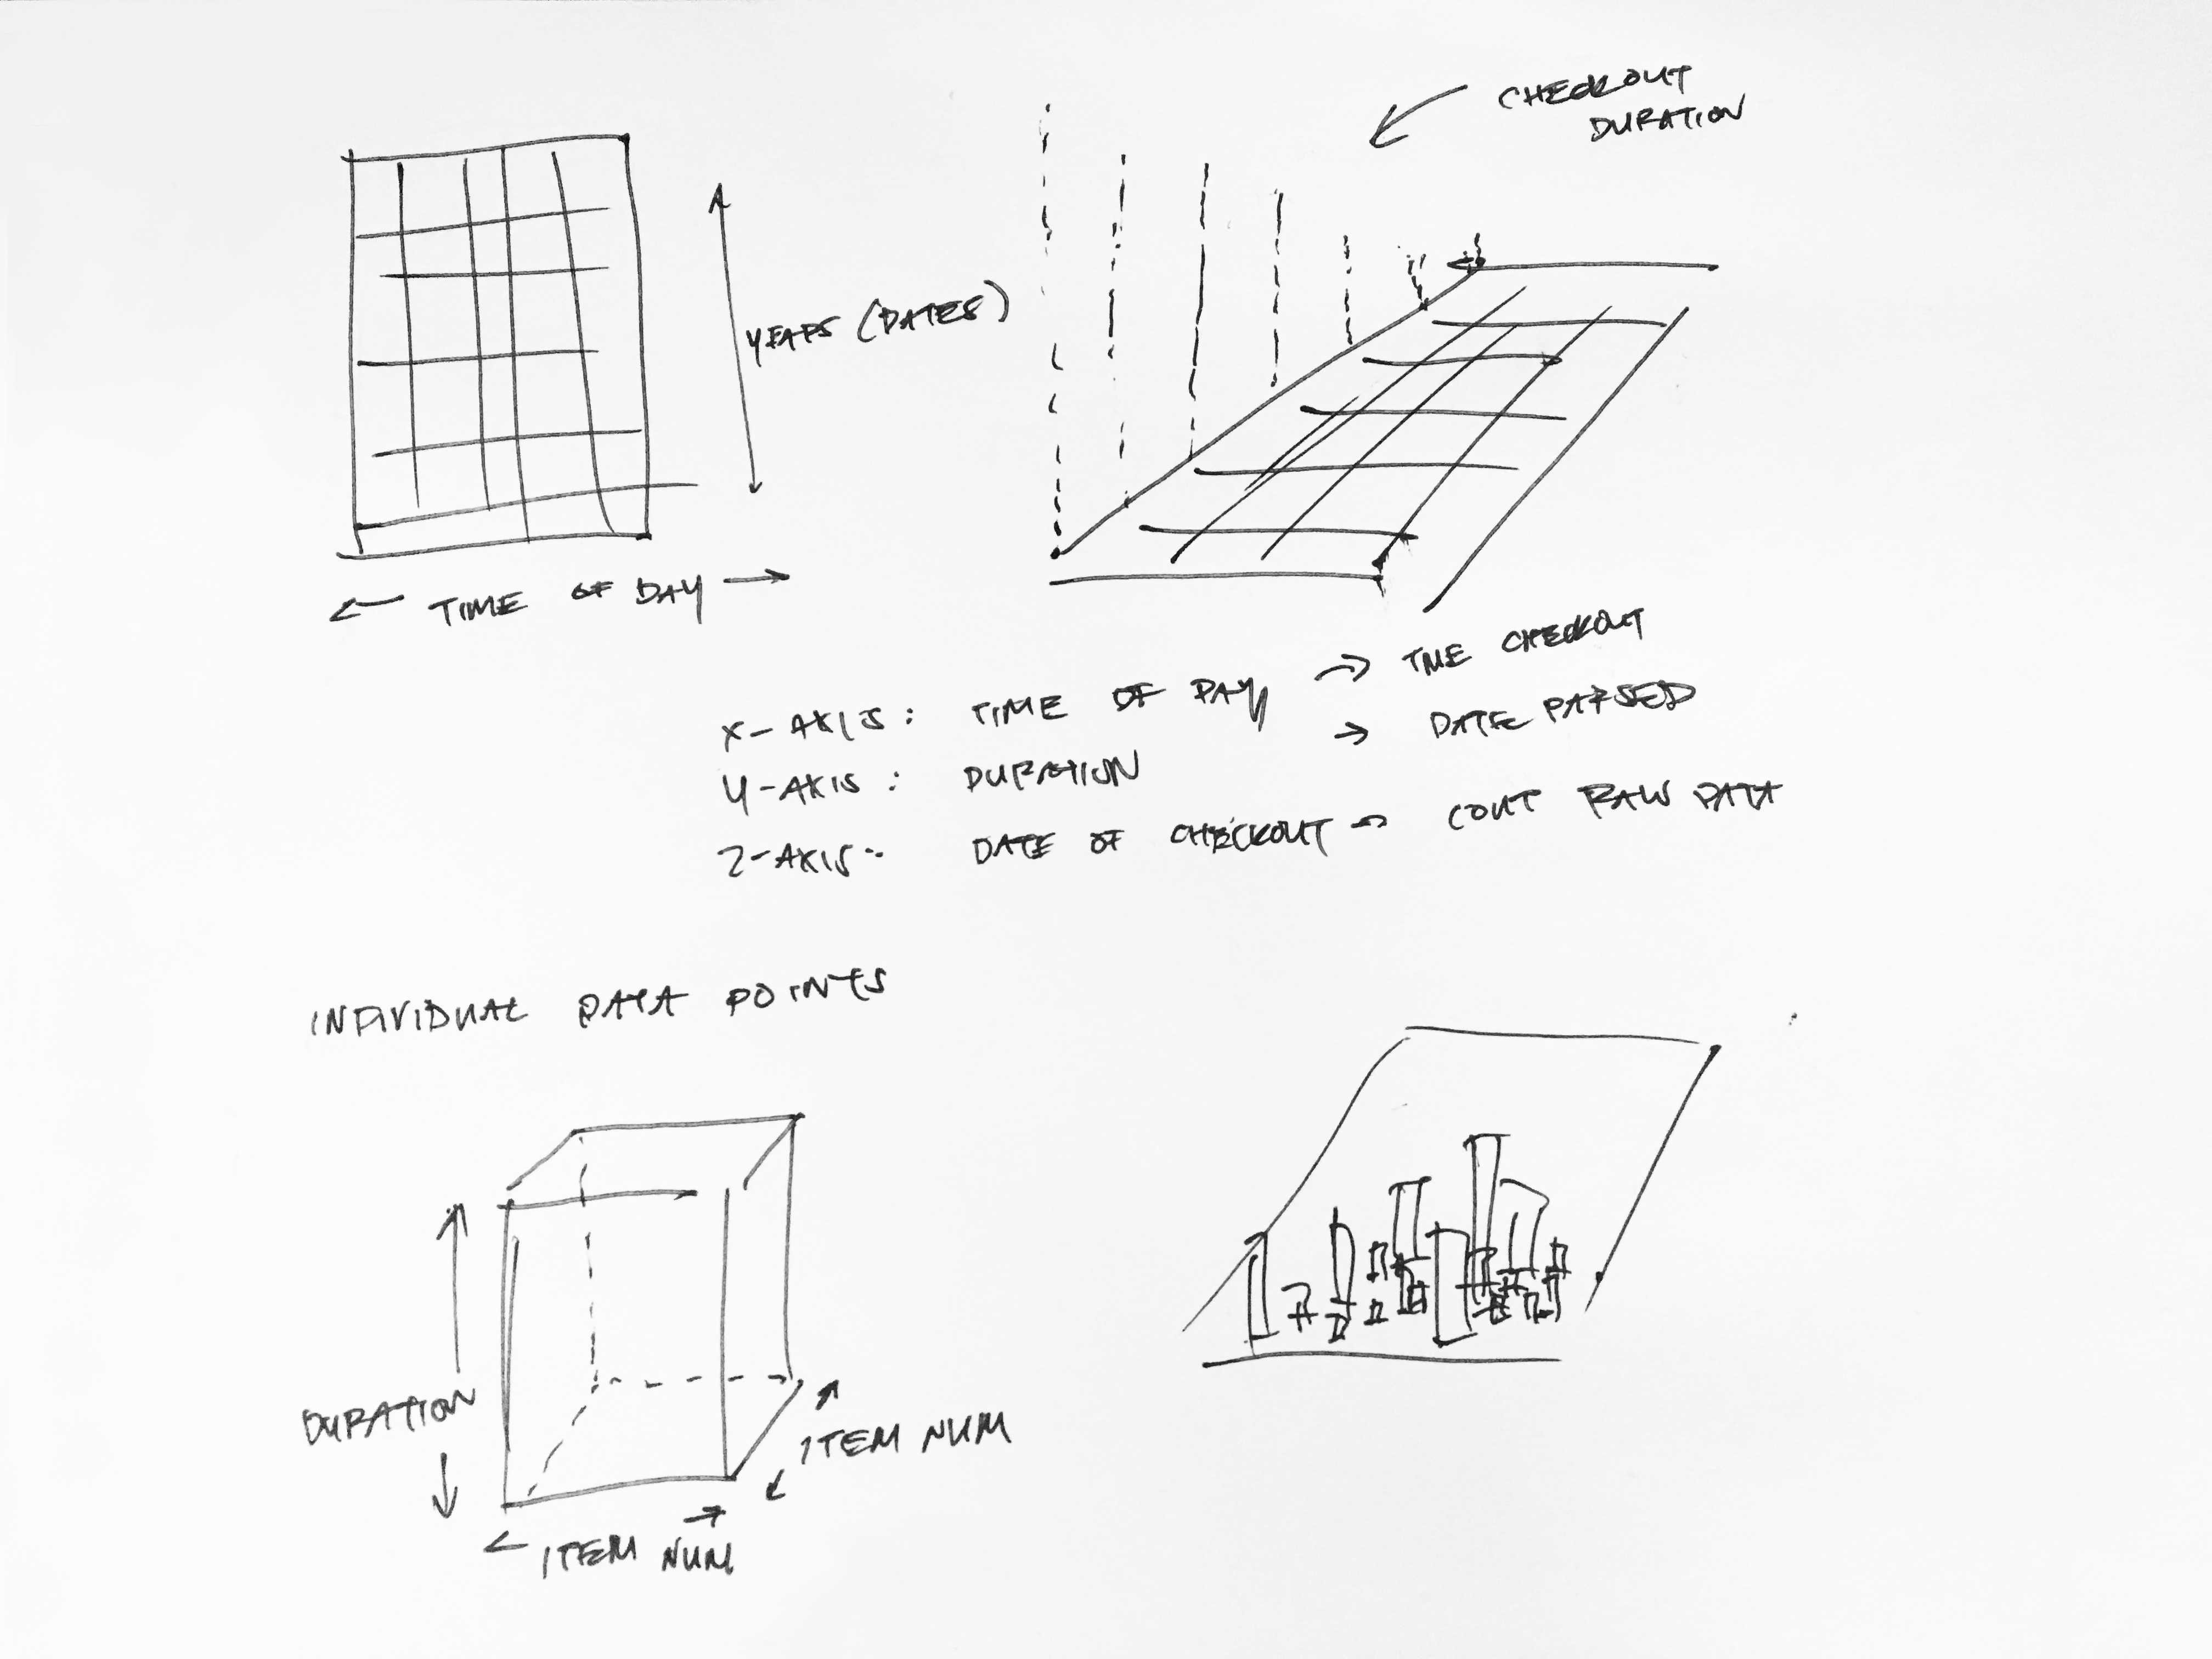 CHECKOUT
DURATION
YEARS (DATES)
← TIME OF DAY →
X-AXIS: TIME OF DAY → TME CHECKOUT
Y-AXIS: DURATION → DATE PARSED
Z-AXIS: DATE OF CHECKOUT → COUT RAW DATA
INDIVIDUAL DATA POINTS
DURATION
ITEM NUM
← ITEM NUM →